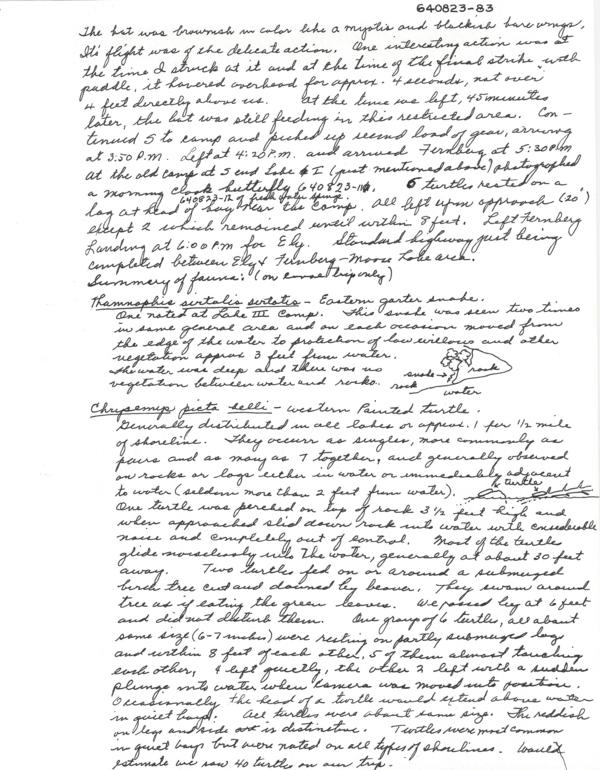 640823-83
The bat was brownish in color like a myotis and blackish bare wings.
Its flight was of the delicate action. One interesting action was at
the time I struck at it and at the time of the final strike with
paddle, it hovered overhead for approx. 4 seconds, not over
4 feet directly above us. At the time we left, 45 minutes
later, the bat was still feeding in this restricted area. Con-
tinued S to camp and picked up second load of gear, arriving
at 3:50 P.M. Left at 4:20 P.M. and arrived Fernberg at 5:30 P.M.
At the old camp at S end Lake I (just mentioned above) photographed
a morning cloak butterfly 640823-11, 6 turtles rested on a
640823-12 of fresh water sponge.
log at head of bay near the camp. All left upon approach (20')
except 2 which remained until within 8 feet. Left Fernberg
Landing at 6:00 P.M. for Ely. Standard highway just being
completed between Ely & Fernberg - Moose Lake area.
Summary of fauna: (on canoe trip only)
Thamnophis sirtalis sirtalis - Eastern garter snake.
One noted at Lake III Camp. This snake was seen two times
in same general area and on each occasion moved from
the edge of the water to protection of low willows and other
vegetation approx 3 feet from water.
The water was deep and there was no
vegetation between water and rocks.
snake→ rock
rock
water
Chrysemys picta belli - western Painted turtle.
Generally distributed in all lakes or approx. 1 per 1/2 mile
of shoreline. They occurr as singles, more commonly as
pairs and as many as 7 together, and generally observed
on rocks or logs either in water or immediately adjacent
to water (seldom more than 2 feet from water). turtle
One turtle was perched on top of rock 3 1/2 feet high and
when approached slid down rock into water with considerable
noise and completely out of control. Most of the turtles
glide noiselessly into the water, generally at about 30 feet
away. Two turtles fed on or around a submerged
birch tree cut and downed by beaver. They swam around
tree as if eating the green leaves. We passed by at 6 feet
and did not disturb them. One group of 6 turtles, all about
same size (6-7 inches) were resting on partly submerged log
and within 8 feet of each other, 5 of them almost touching
each other, 4 left quietly, the other 2 left with a sudden
plunge into water when camera was moved into position.
Occasionally the head of a turtle would extend above water
in quiet bays. All turtles were about same size. The reddish
on legs and side is distinctive. Turtles were most common
in quiet bays but were noted on all types of shorelines. Would
estimate we saw 40 turtles on our trip.